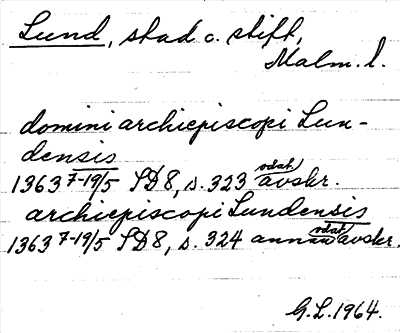 Lund, stad o. stift,
Malm. l.
domini archiepiscopi Lun-
densis
1363 7-19/5 SD8, s. 323 odat. avskr.
archiepiscopi Lundensis
1363 7-19/5 SD8, s. 324 annan odat. avskr.
G.L. 1964.